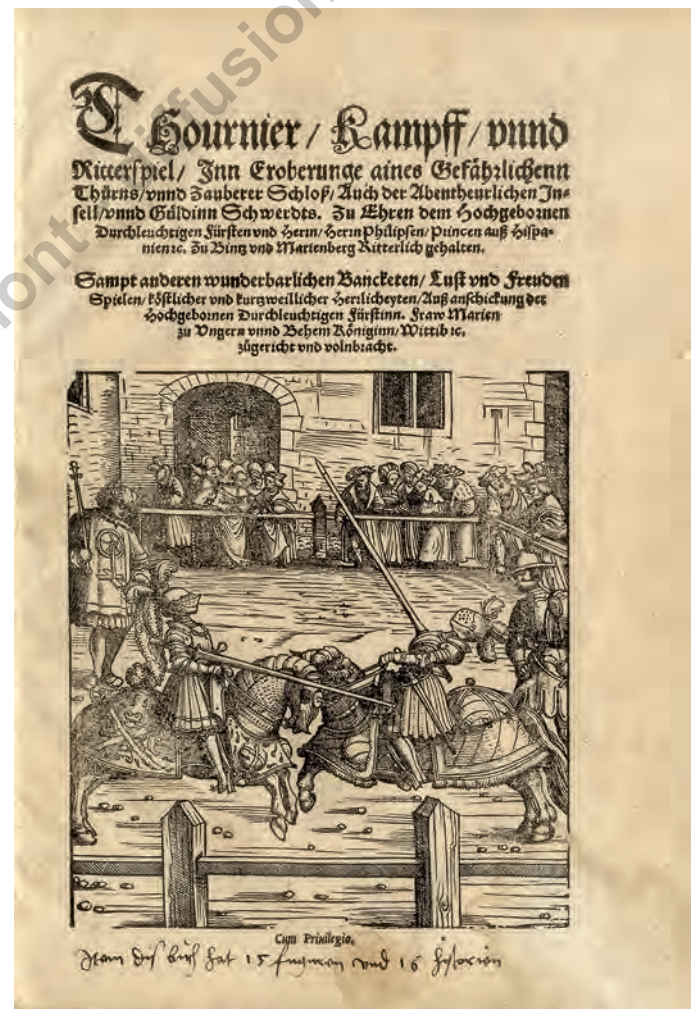 Thournier / Kampff / vnnd
Ritterspiel / Inn Eroberunge aines Gefährlichenn
Thůrns / vnnd Zauberer Schloß / Auch der Abentheurlichen In⸗
sell / vnnd Güldinn Schwerdts. Zu Ehren dem Hochgebornen
Durchleuchtigen Fürsten vnd Herrn / Herrn Philipsen / Princen auß Hispa⸗
nien ꝛc. Zu Bintz vnd Marienberg Ritterlich gehalten.
Sampt anderen wunderbarlichen Bancketen / Lust vnd Freuden
Spielen / köstlicher vnd kurtzweillicher Herrlicheyten / Auß anschickung der
Hochgebornen Durchleuchtigen Fürstinn. Fraw Marien
zu Vngern vnnd Behem Königinn / Wittib ꝛc.
zůgericht vnd volnbracht.
Cum Priuilegio.
Item diß bůch hat 15 figuren vnd 16 historien